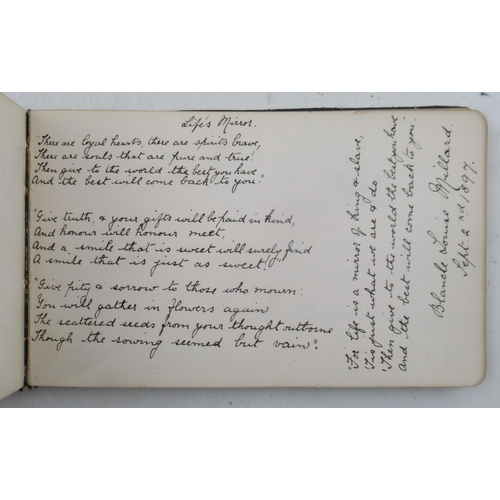 Life's Mirror.
"There are loyal hearts, there are spirits brave,
There are souls that are pure and true!
Then give to the world the best you have
And the best will come back to you."
"Give truth, & your gifts will be paid in kind,
And honour will honour meet,
And a smile that is sweet will surely find
A smile that is just as sweet!"
"Give pity & sorrow to those who mourn:
You will gather in flowers again
The scattered seeds from your thought outborne
Though the sowing seemed but vain".
"For life is a mirror of king & slave,
'Tis just what we are & do
'Then give to the world the best you have
And the best will come back to you."
Blanche Louise Millard.
Sept 2nd, 1897.